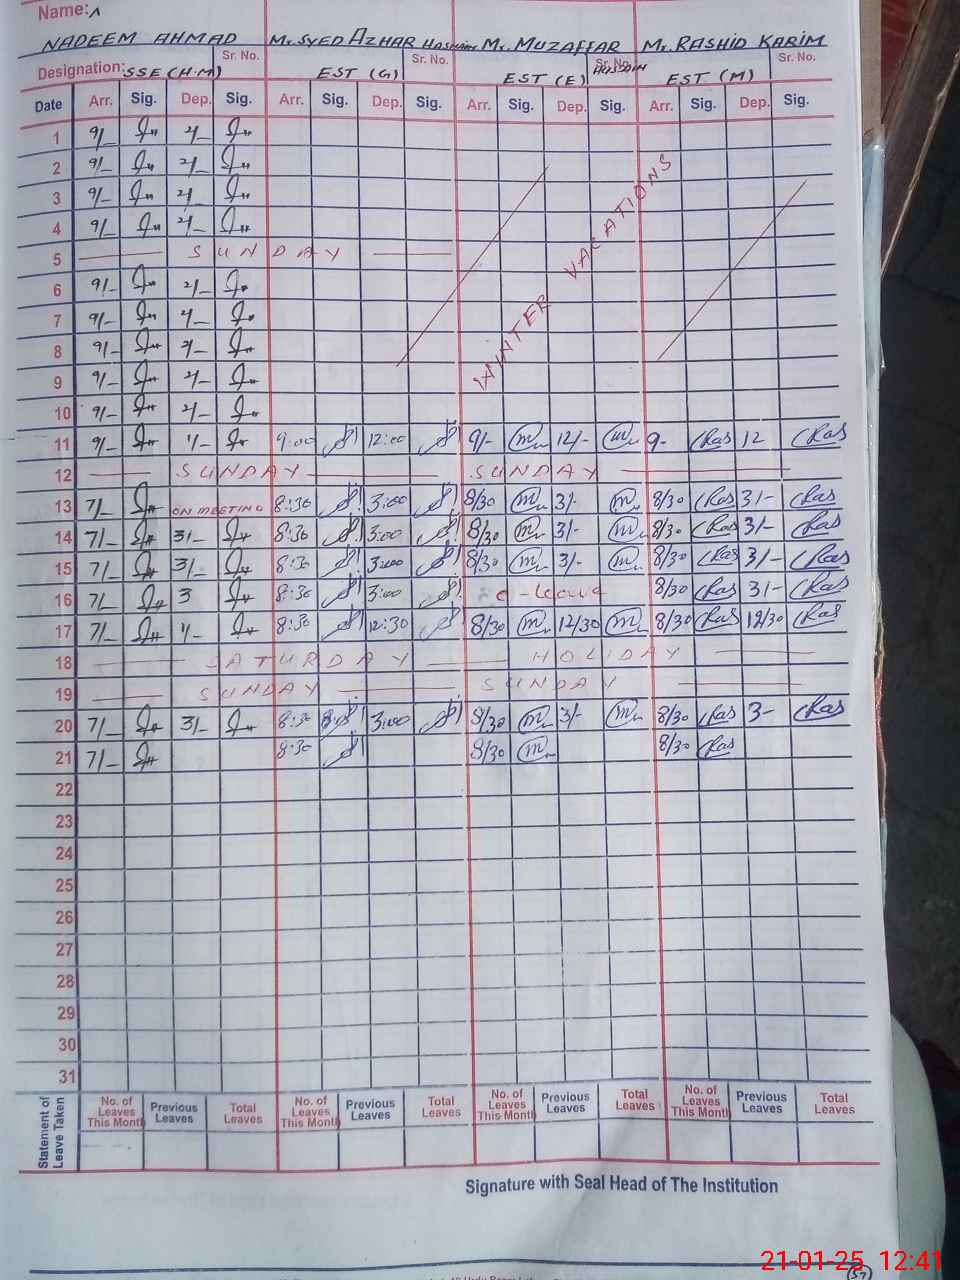 Name:
NADEEM AHMAD Mr SYED AZHAR HASNAIN Mr. MUZAFFAR HUSSAIN Mr. RASHID KARIM
Designation: SSE (H.M) Sr. No. EST (G) Sr. No. EST (E) Sr. No. EST (M) Sr. No.
Date Arr. Sig. Dep. Sig. Arr. Sig. Dep. Sig. Arr. Sig. Dep. Sig. Arr. Sig. Dep. Sig.
1 9/- 2/-
2 9/- 2/-
3 9/- 2/-
4 9/- 2/-
5 SUNDAY
6 9/- 2/-
7 9/- 2/-
8 9/- 2/-
9 9/- 2/-
10 9/- 2/-
WINTER VACATIONS
11 9/- 1/- 9:00 12:00 9/- 12/- 9- 12
12 SUNDAY SUNDAY
13 7/- ON MEETING 8:30 3:00 8/30 3/- 8/30 3/-
14 7/- 3/- 8:30 3:00 8/30 3/- 8/30 3/-
15 7/- 3/- 8:30 3:00 8/30 3/- 8/30 3/-
16 7/- 3 8:30 3:00 c-leave 8/30 3/-
17 7/- 1/- 8:30 12:30 8/30 12/30 8/30 12/30
18 SATURDAY HOLIDAY
19 SUNDAY SUNDAY
20 7/- 3/- 8:30 3:00 8/30 3/- 8/30 3-
21 7/- 8:30 8/30 8/30
22
23
24
25
26
27
28
29
30
31
Statement of Leave Taken
No. of Leaves This Month Previous Leaves Total Leaves No. of Leaves This Month Previous Leaves Total Leaves No. of Leaves This Month Previous Leaves Total Leaves No. of Leaves This Month Previous Leaves Total Leaves
Signature with Seal Head of The Institution
21-01-25 12:41
(57)